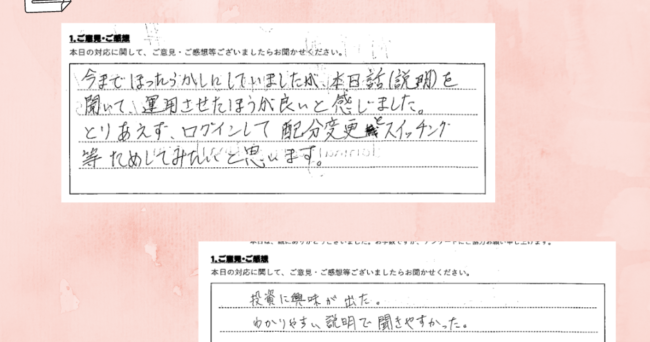 1.ご意見・ご感想
本日の対応に関して、ご意見・ご感想等ございましたらお聞かせください。
今までほったらかしにしていましたが、本日話(説明)を
聞いて、運用させたほうが良いと感じました。
とりあえず、ログインして配分変更とスイッチング
等ためしてみたいと思います。
1.ご意見・ご感想
本日の対応に関して、ご意見・ご感想等ございましたらお聞かせください。
投資に興味が出た。
わかりやすい説明で聞きやすかった。